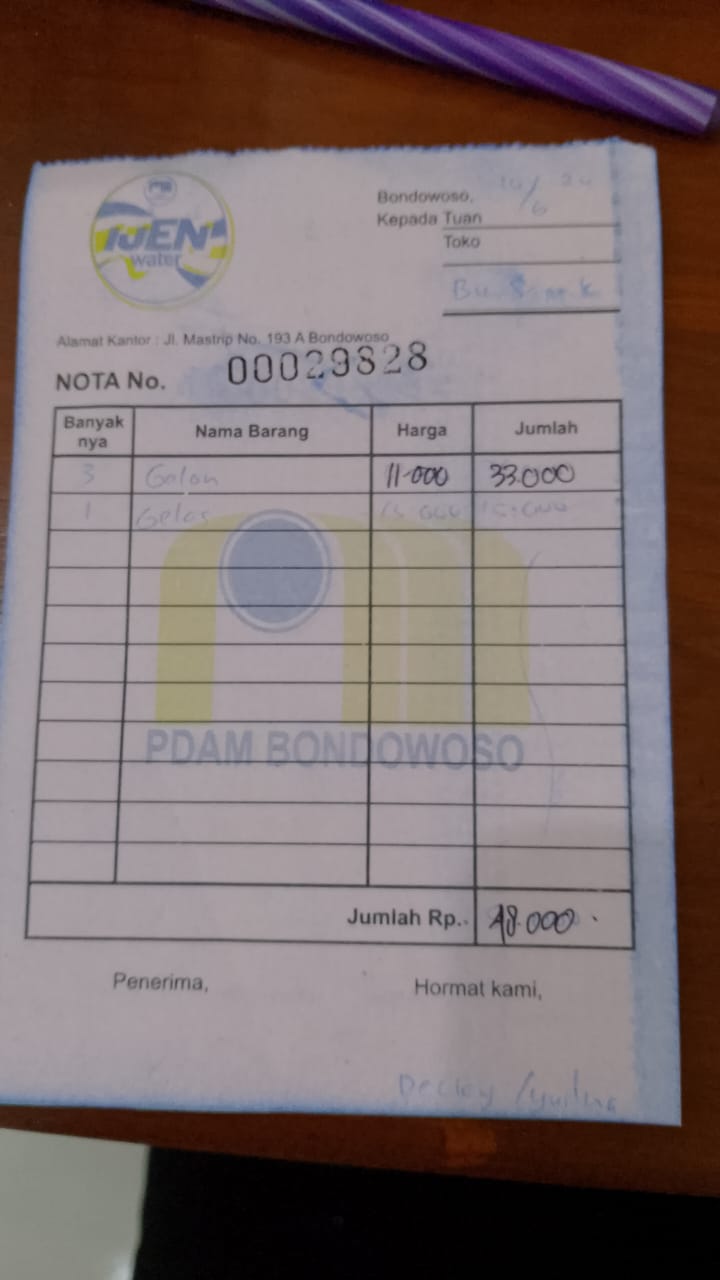 IJEN
water
Bondowoso, 10/6 24
Kepada Tuan
Toko
Bu
Alamat Kantor : Jl. Mastrip No. 193 A Bondowoso
NOTA No. 00029828
Banyak nya Nama Barang Harga Jumlah
3 Galon 11.000 33.000
1 Gelas 15.000 15.000
PDAM BONDOWOSO
Jumlah Rp. 48.000
Penerima, Hormat kami,